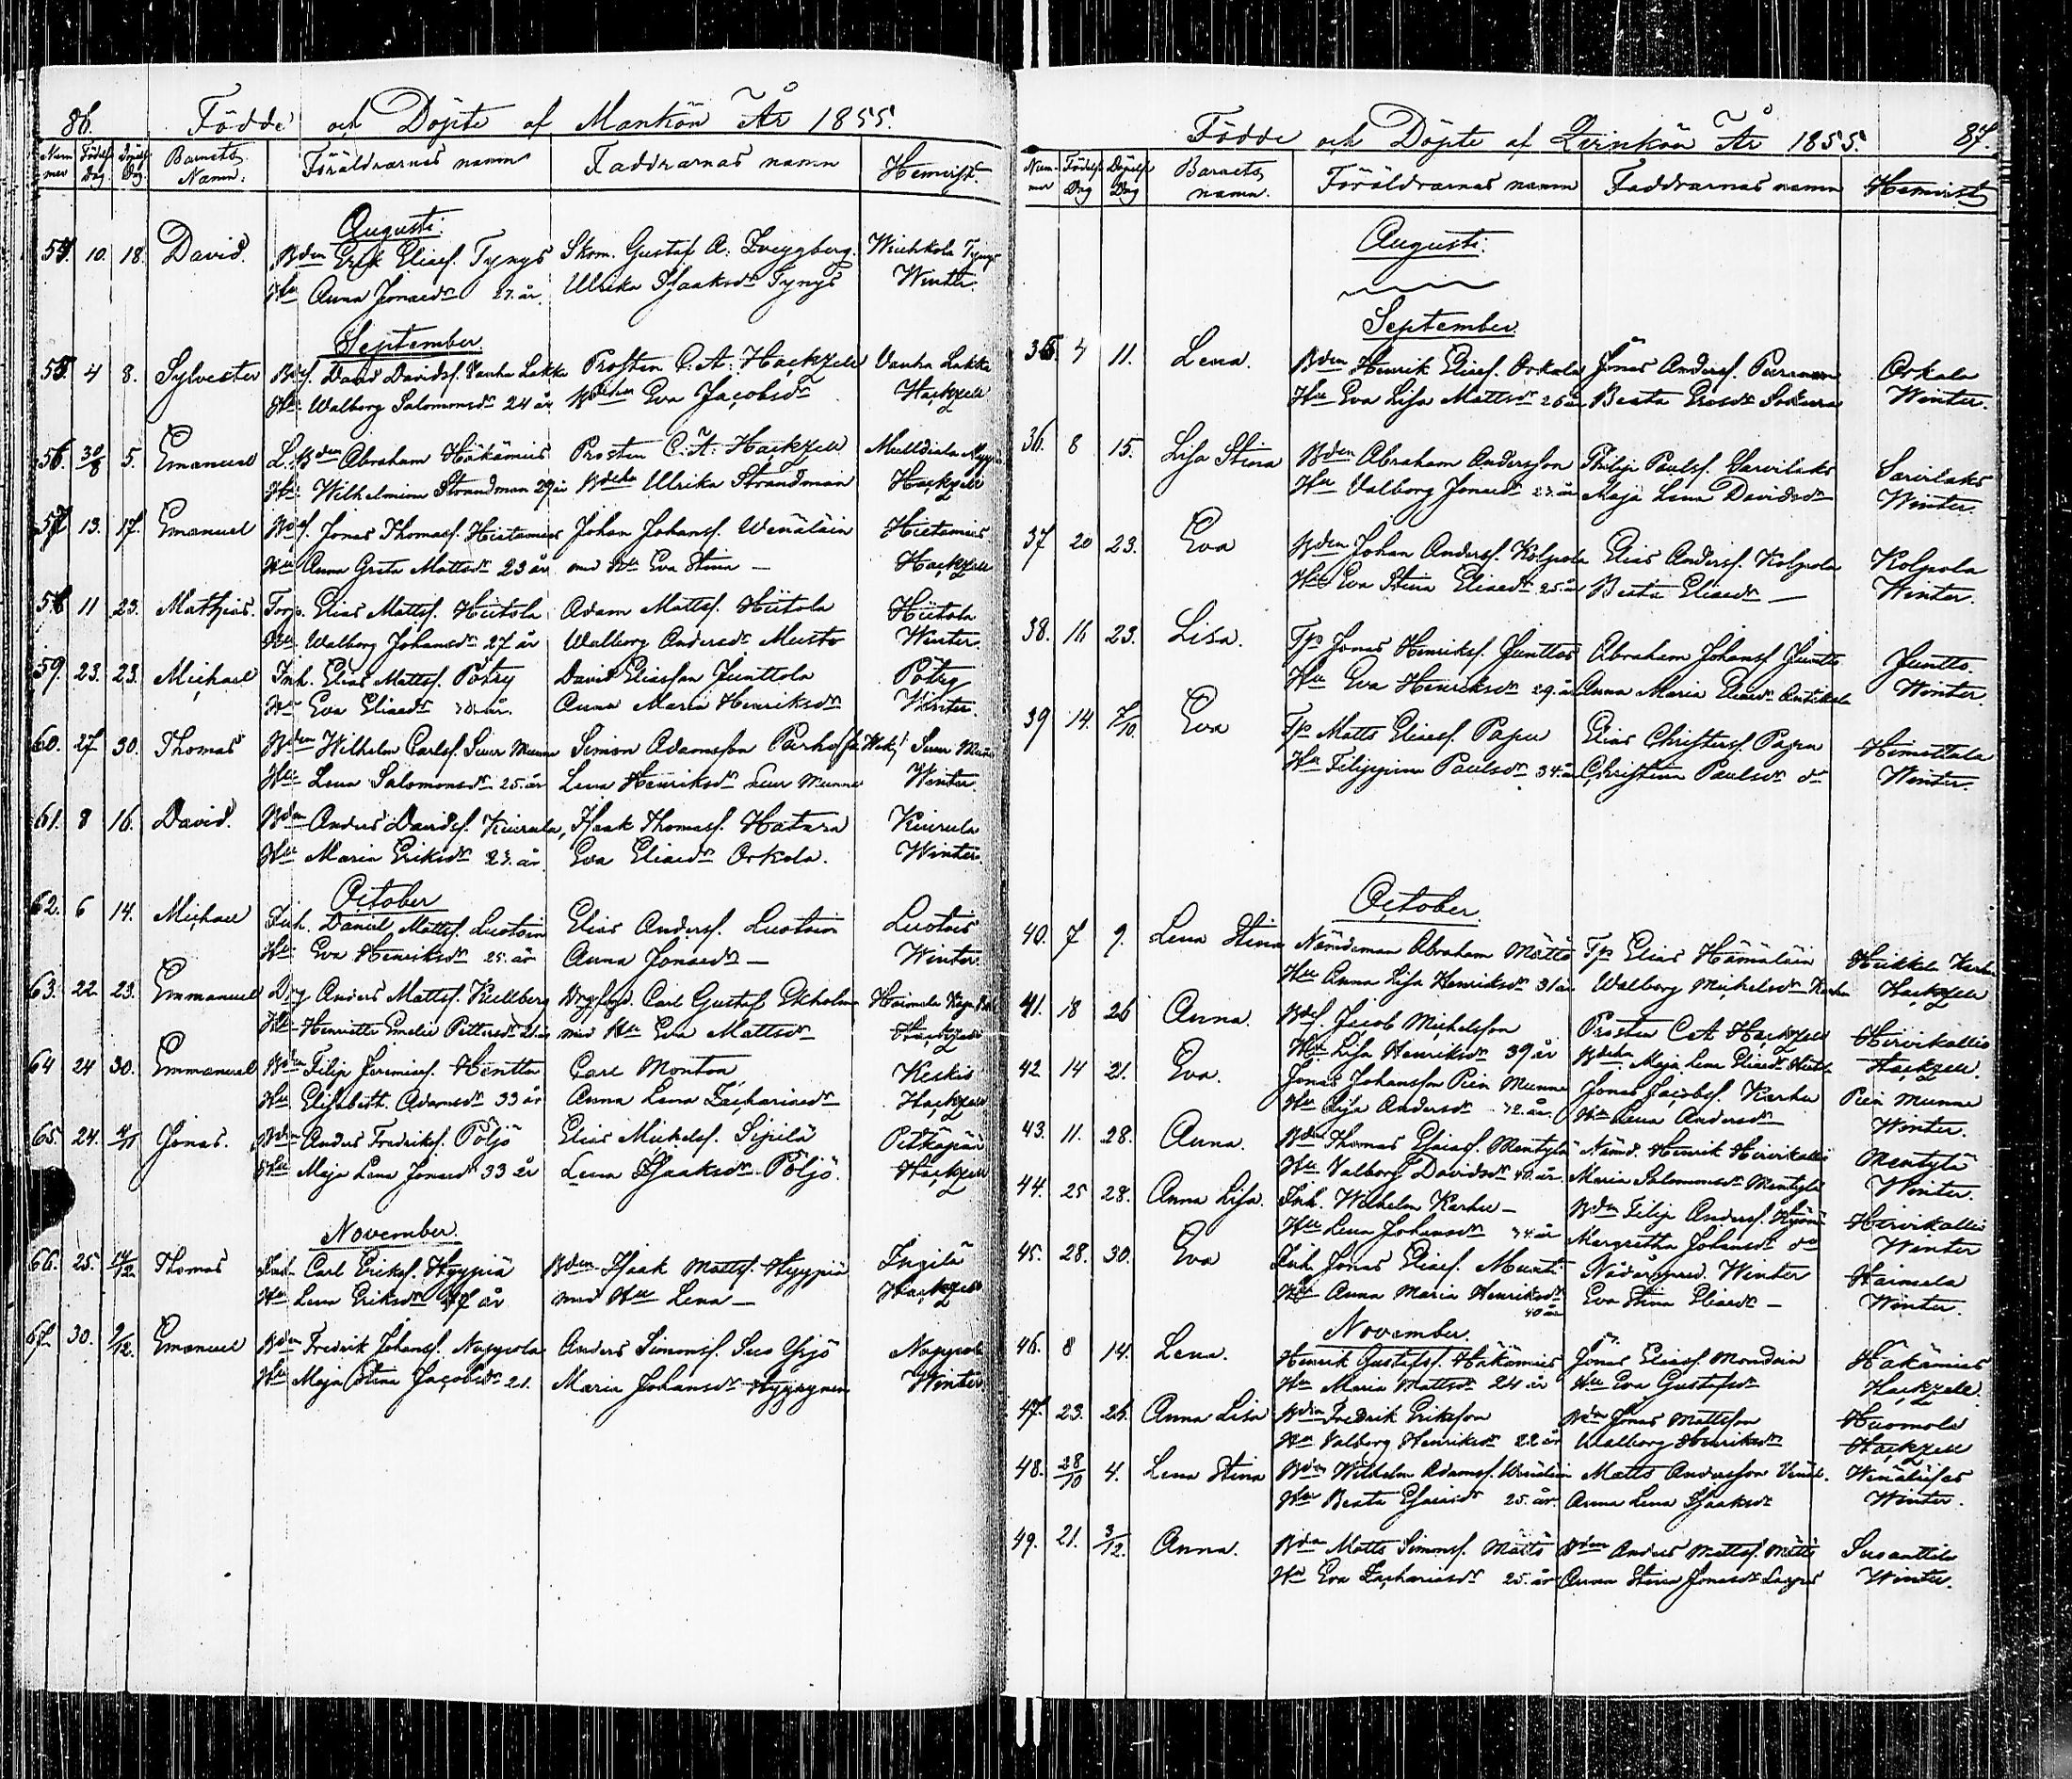 86.
Födde och Döpte af Mankön År 1855.
Num mer Födels Dag Döpels Dag Barnets Namn. Föräldrarnas namn Faddrarnas namn Hemvist.
Augusti.
54 10. 18. David. Bden Erik Eliasf. Tynys Skom. Gustaf A. Wichkola Tynys
Hu Anna Jonasdr 27. år. Ulrika Isaaksdr Tynys Winter.
September.
55 4 8. Sylvester Bdsf. David Davidsf. Vanha Lakka Prosten C. A. Hackzell Vanha Lakka
Hu Walborg Salomonsdr 24 år Eva Jacobsdr Hackzell
56. 30/8 5. Emanuel L. Bden Abraham Häkämies Prosten C. A. Hackzell
Hu Wilhelmina Strandman 29 år Bdeka Ulrika Strandman Hackzell
57 13. 17. Emanuel Bdsf. Jonas Thomasf. Hietamies Johan Johansf. Wenäläin Hietamies
Hu Anna Greta Mattsdr 23 år med Hu Eva Stina — Hackzell
58 11 23. Mathias Torp. Elias Mattsf. Hiitola Adam Mattsf. Hiitola Hiitola
Hu Walborg Johansdr 27 år Walborg Andersdr Musto Winter.
59. 23. 23. Michael Inh. Elias Mattsf. Pötry David Eliasson Junttola Pötry
Hu Eva Eliasdr år. Anna Maria Henriksdr Winter.
60. 27 30. Thomas Bden Wilhelm Carlsf. Suur Munne Simon Adamsson Parho Suur Munne
Hu Lena Salomonsdr 25. år Lena Henriksdr Suur Munne Winter
61. 8 16. David. Bden Anders Davidsf. Kiurula, Isaak Thomasf. Hatara Kiurula
Hu Maria Eriksdr 23. år. Eva Eliasdr Orkola. Winter.
October
62. 6 14. Michael Inh. Daniel Mattsf. Lustoin Elias Andersf. Lustoin Lustois
Hu Eva Henriksdr 25. år Anna Jonasdr — Winter.
63. 22 23. Emmanuel Anders Mattsf. Kullberg Carl Gustaf Ekholm Haimala
Hu Henriette Emelie Pettersdr med Hu Eva Mattsdr Hackzell
64 24 30. Emmanuel Bden Filip Jeremiasf. Hintta Carl Monton Keskis
Hu Elisabeth Adamsdr 33 år Anna Lena Zachariasdr Hackzell
65. 24. 4/11 Jonas. Bden Anders Fredriksf. Pöljö Elias Michelsf. Sipilä Pitkäpää
Hu Maja Lena Jonasdr 33 år Lena Isaaksdr Pöljö. Hackzell
November.
66. 25. 14/12 Thomas Inh. Carl Eriksf. Hyypiä Bden Isaak Mattsf. Hyypiä Ingilä
Hu Lena Eriksdr år med Hu Lena — Hackzell
67. 30. 9/12. Emanuel Bden Fredrik Johansf. Noppola Anders Simonsf. Suo Yrjö Noppola
Hu Maja Stina Jacobsdr 21. Maria Johansdr Hyyrynen Winter
87.
Födde och Döpte af Qvinkön År 1855.
Num- mer Födels Dag Döpels Dag Barnets namn. Föräldrarnas namn Faddrarnas namn Hemvist
Augusti.
September.
35. 4 11. Lena. Bden Henrik Eliasf. Orkola Jonas Andersf. Orkola
Hu Eva Lisa Mattsdr 26 år Beata Winter.
36. 8 15. Lisa Stina Bden Abraham Andersson Philip Paulsf. Sarvilaks Sarvilaks
Hu Valborg Jonasdr 23. år Maja Lena Davidsdr Winter.
37 20 23. Eva Bden Johan Andersf. Kolpola Elias Andersf. Kolpola Kolpola
Hu Eva Stina Eliasdr 25. år Beata Eliasdr — Winter.
38. 16 23. Lisa. Tp Jonas Henriksf. Junttos Abraham Johansf. Juntto Juntto.
Hu Eva Henriksdr 29. år Anna Maria Eliasdr Winter.
39 14. 7/10. Eva Tp Matts Eliasf. Papu Elias Christersf. Papu Himottala
Hu Filippina Paulsdr 34. år Christina Paulsdr do Winter.
October.
40. 7 9. Lena Stina Nämdeman Abraham Mättö Tp Elias Hämäläin Heikkilä Karhu
Hu Anna Lisa Henriksdr 31 år Walborg Michelsdr Karhu Hackzell
41. 18 26 Anna. Bdsf. Jacob Michelsson Prosten C A Hackzell Hirvikallio
Hu Lisa Henriksdr 39 år Bdeka Maja Lena Eliasdr Hackzell.
42 14 21. Eva. Jonas Johansson Pien Munne Jonas Jacobsf. Karhu Pien Munne
Hu Lisa Andersdr 32 år. Hu Lena Andersdr Winter.
43. 11. 28. Anna. Bden Thomas Esaiasf. Mentylä Nämd. Henrik Hirvikallio Mentylä
Hu Valborg Davidsdr 40. år. Maria Salomonsdr Mentylä Winter.
44. 25 28. Anna Lisa. Inh. Wilhelm Karhu — Bden Filip Andersf. Hirvikallio
Hu Lena Johansdr 34 år Margretha Johansdr do Winter
45. 28. 30. Eva Inh. Jonas Eliasf. Munti Winter Haimala
Hu Anna Maria Henriksdr Eva Stina Eliasdr — Winter.
40 år
November.
46. 8 14. Lena. Henrik Gustafsf. Häkämies Jonas Eliasf. Mondoin Häkämies
Hu Maria Mattsdr 24 år Hu Eva Gustafsdr Hackzell.
47. 23. 26. Anna Lisa Bden Fredrik Eriksson Bden Jonas Mattsson Huomola
Hu Valborg Henriksdr 22 år Walborg Henriksdr Hackzell
48. 28/10 4. Lena Stina Bden Wilhelm Adamsf. Wenäläin Matts Andersson Wenäl. Wenäläises
Hu Beata Esaiasdr 25. år. Anna Lena Isaaksdr Winter.
49. 21. 3/12. Anna. Bden Matts Simonsf. Mättö Bden Anders Mattsf. Mättö Suoanttila
Hu Eva Zachariasdr 25. år Anna Stina Jonasdr Winter.